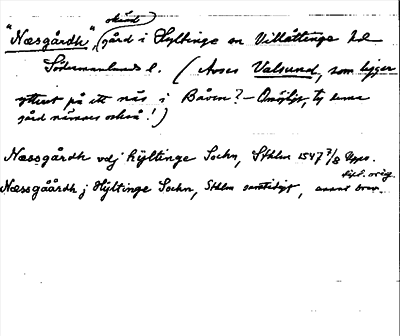 okänd
"Næsgårdh", gård i Hyltinge sn Villåttinge hd
Södermanlands l. (Avses Valsund, som ligger
ytterst på ett näs i Båven? – Omöjligt, ty denna
gård nämnes också!)
Næssgårdh vdj hyltinge Sochn, Sthlm 1547 7/8 Upps.
dipl. orig.
Næssgåårdh j Hyltinge Sochn, Sthlm samtidigt, annat brev.